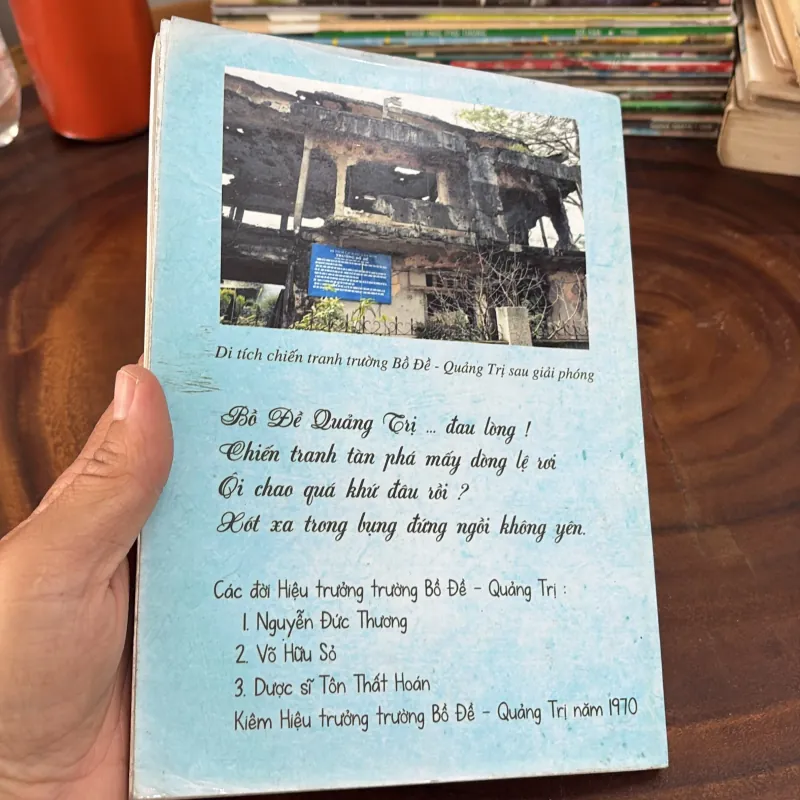 TRƯỜNG BỒ ĐỀ
Di tích chiến tranh trường Bồ Đề - Quảng Trị sau giải phóng
Bồ Đề Quảng Trị ... đau lòng !
Chiến tranh tàn phá mấy dòng lệ rơi
Ôi chao quá khứ đâu rồi ?
Xót xa trong bụng đứng ngồi không yên.
Các đời Hiệu trưởng trường Bồ Đề - Quảng Trị :
1. Nguyễn Đức Thương
2. Võ Hữu Sỏ
3. Dược sĩ Tôn Thất Hoán
Kiêm Hiệu trưởng trường Bồ Đề - Quảng Trị năm 1970